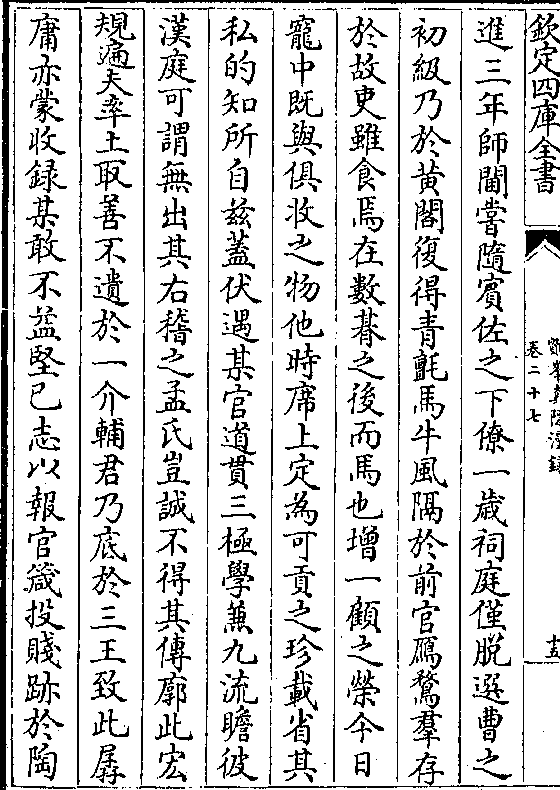 欽定四庫全書
卷二十七
進三年師閫嘗隨賓佐之下僚一歳祠庭僅脱選曹之
初級乃於黄閣復得青氈馬牛風隔於前官鴈鶩羣存
於故吏雖食焉在數朞之後而馬也增一顧之榮今日
寵中既與俱收之物他時席上定為可貢之珍載省其
私的知所自兹蓋伏遇某官道貫三極學兼九流瞻彼
漢庭可謂無出其右稽之孟氏豈誠不得其傳廓此宏
規遍夫率土取善不遺於一介輔君乃底於三王致此孱
庸亦蒙收録某敢不益堅已志以報官箴投賤跡於陶